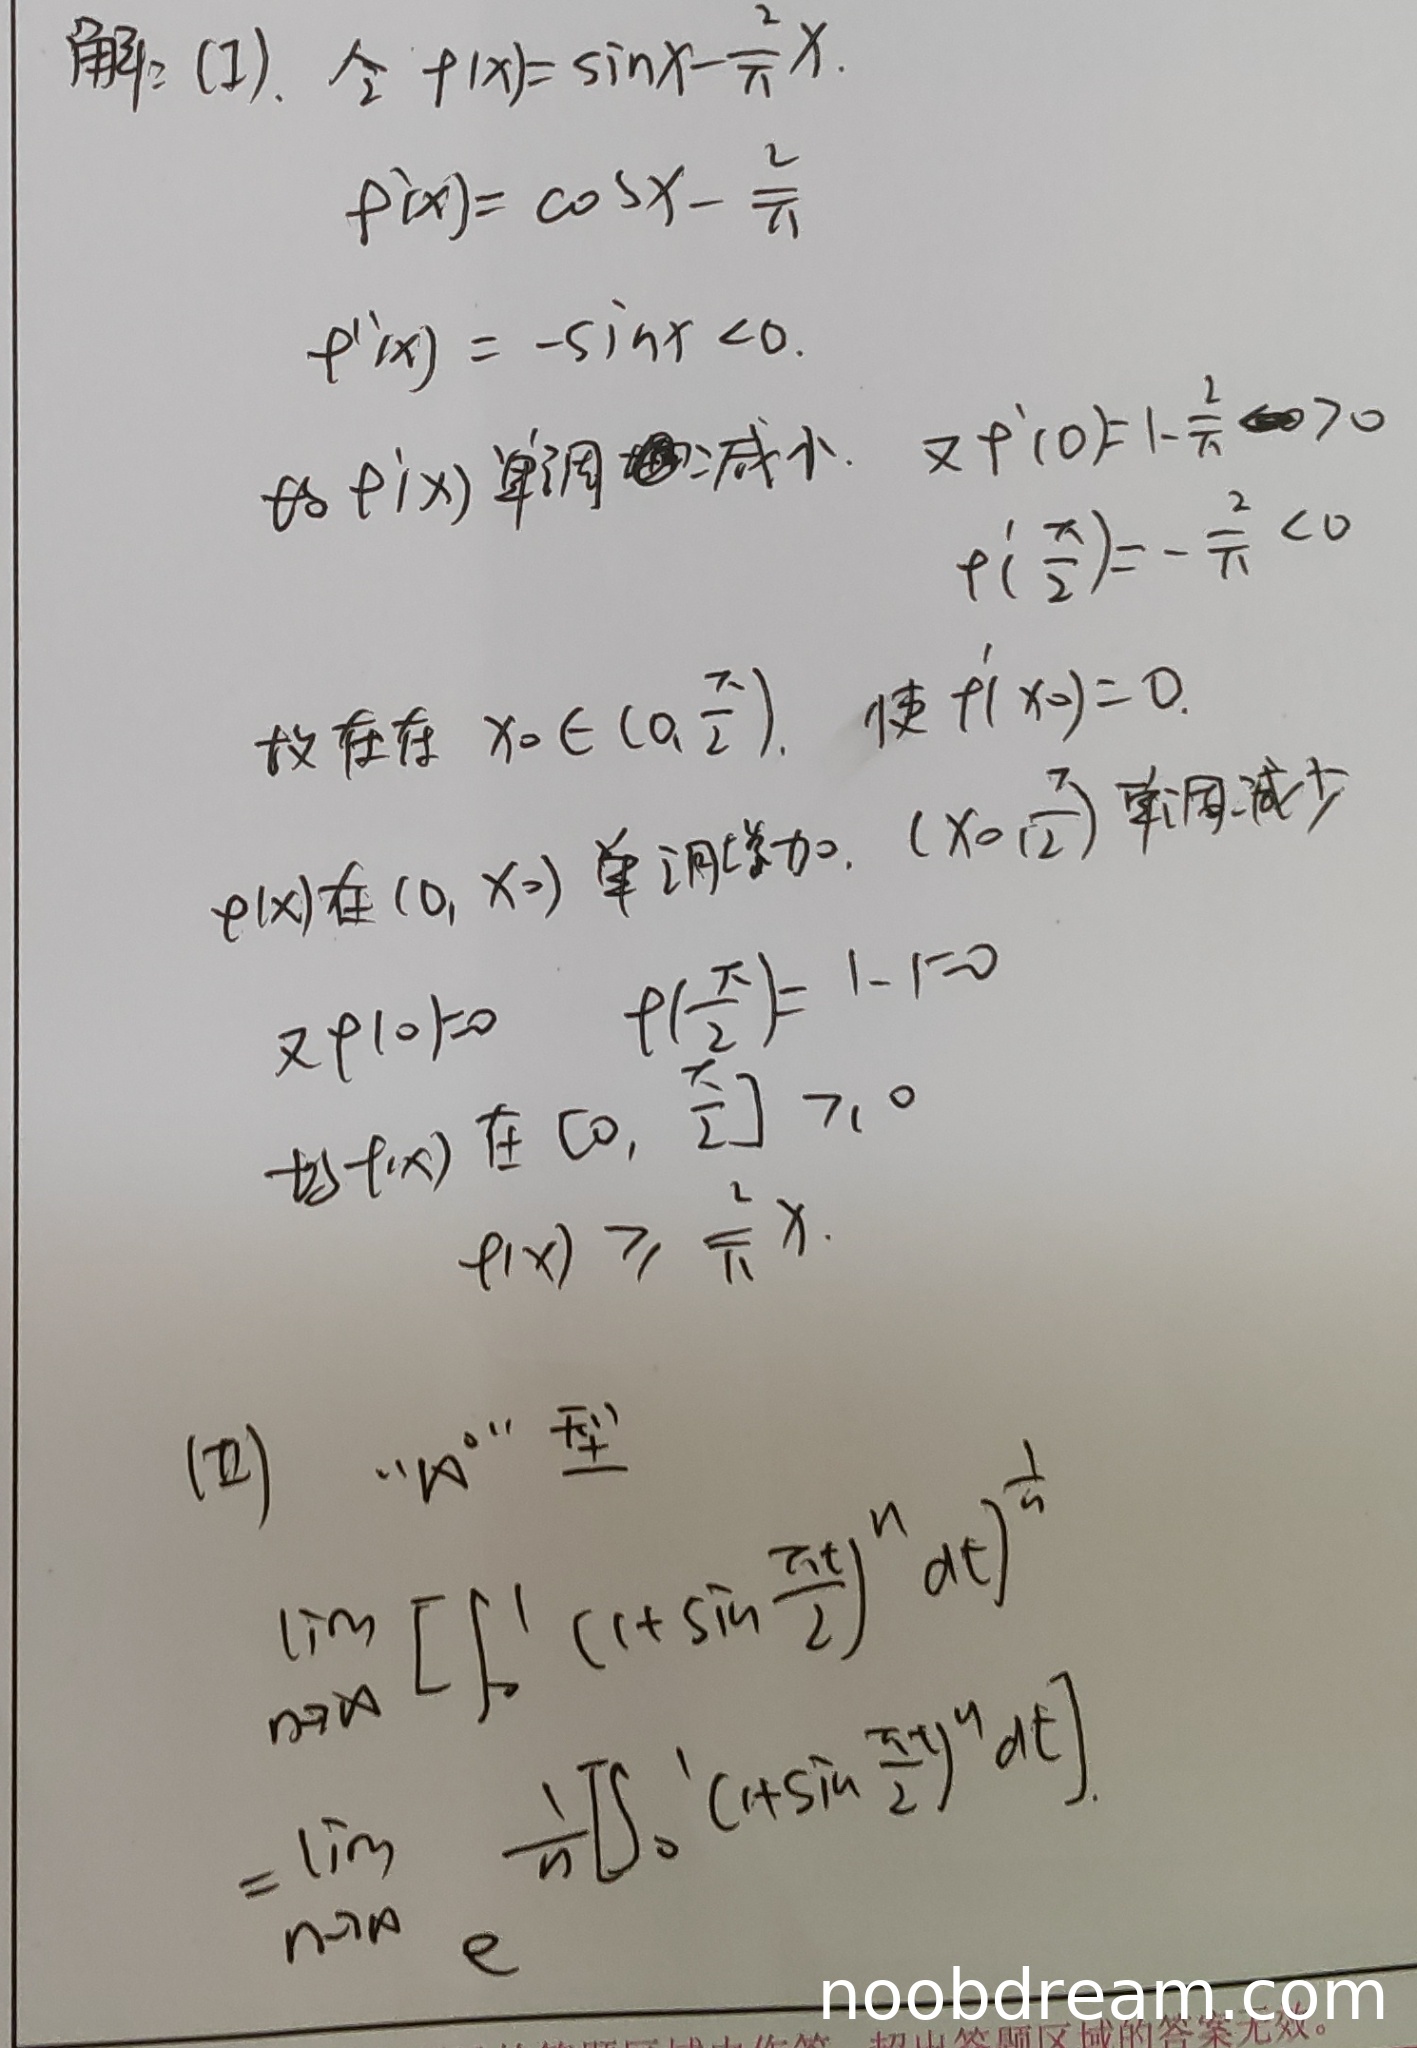 解: (I). 令 f(x)= sinx - \frac{2}{π} x.
f'(x)= cosx - \frac{2}{π}
f''(x) = -sinx < 0.
故 f'(x) 单调 减小. 又 f'(0)= 1 - \frac{2}{π} > 0
f'(\frac{π}{2}) = - \frac{2}{π} < 0
故存在 x₀ ∈ (0, \frac{π}{2}). 使 f'(x₀) = 0.
f(x) 在 (0, x₀) 单调增加. (x₀, \frac{π}{2}) 单调减少
又 f(0)=0 f(\frac{π}{2}) = 1-1=0
故 f(x) 在 [0, \frac{π}{2}] ≥ 0
f(x) ≥ \frac{2}{π} x.
(II) "∞⁰" 型
lim_{n→∞} [ ∫_0^1 (1+ sin \frac{πt}{2})^n dt )^{\frac{1}{n}}
= lim_{n→∞} e^{\frac{1}{n} [∫_0^1 (1+sin \frac{πt}{2})^n dt].}
noobdream.com
超出答题区域的答案无效。